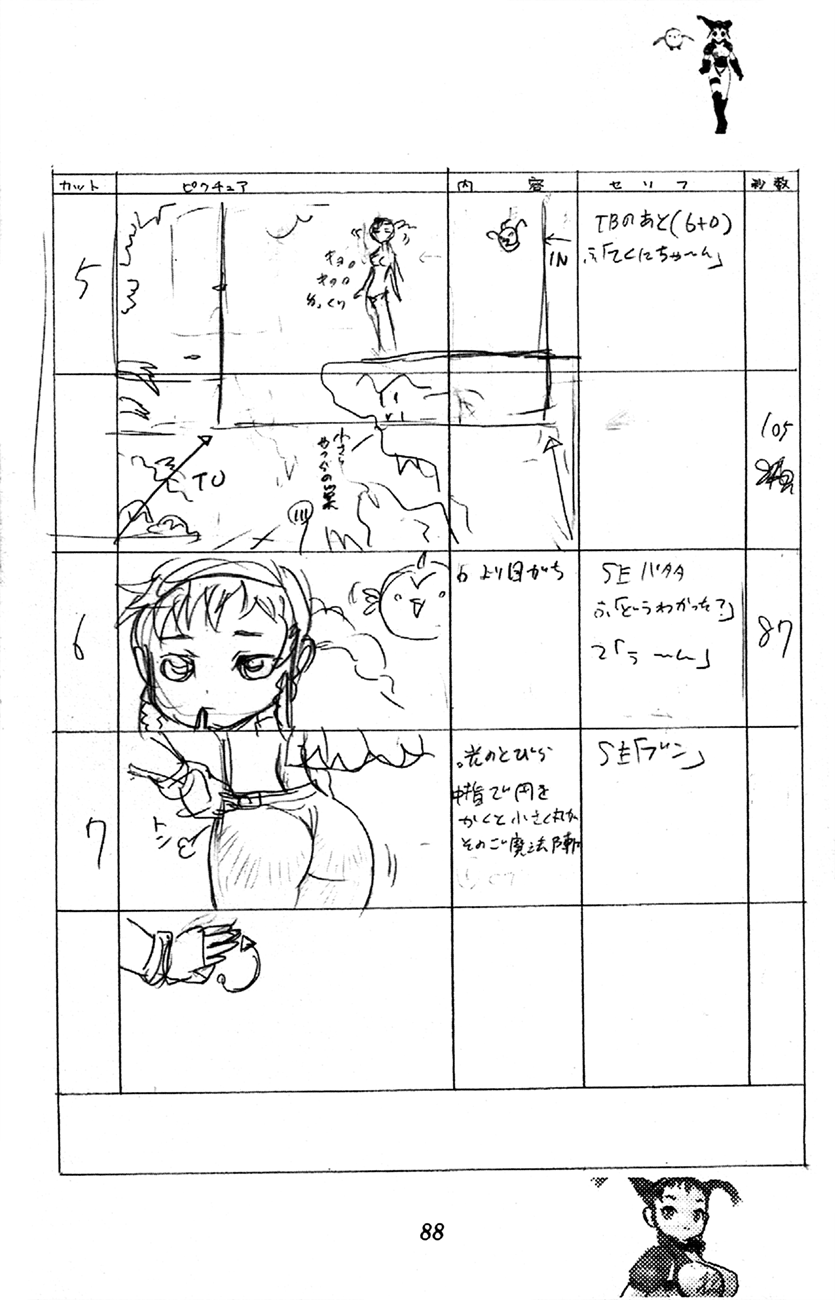 カット ピクチュア 内容 セリフ 秒数
5
キョロ
キョロ
IN
TBのあと(6+0)
ふ「てくにちゃ〜ん」
TU
105
6
より目がち
SE バタタ
ふ「どうわかった?」
て「う〜ん」
87
7
トン
。光のとびら
中指で円を
かくと小さく丸が
そのご魔法陣
SE「ブン」
88